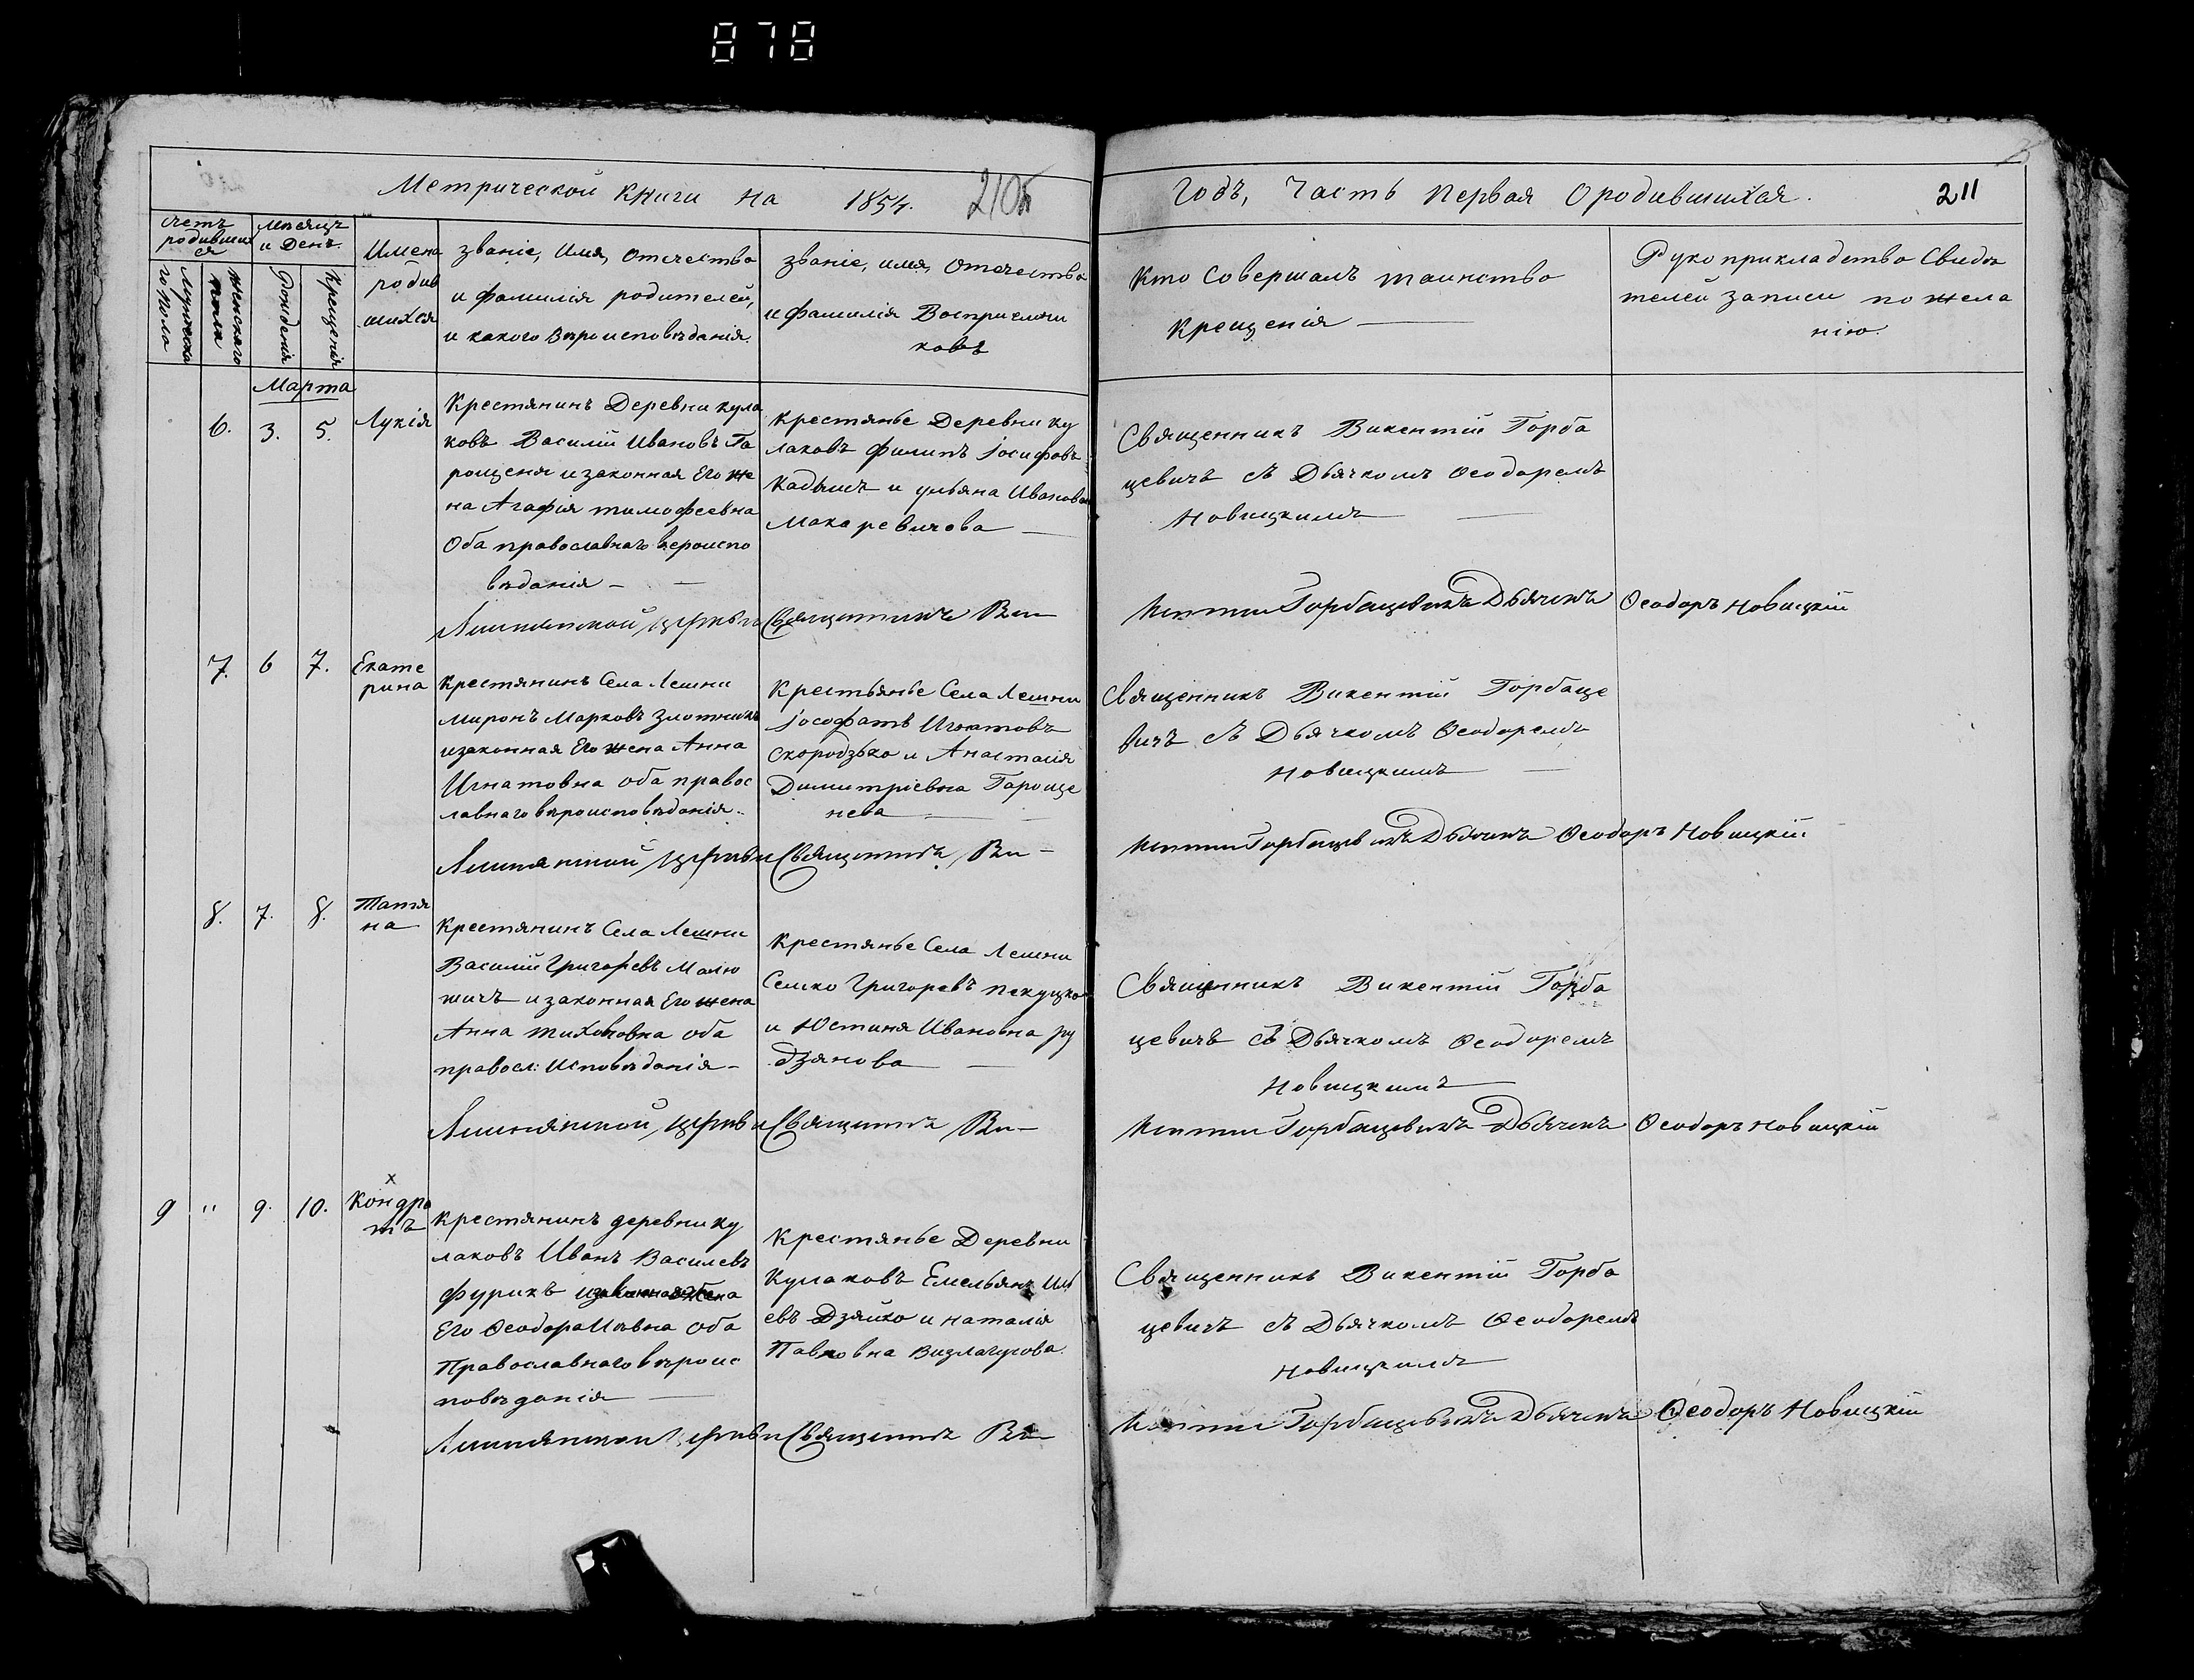 878
Метрической Книги на 1854. 210б
Годъ, Часть Первая О родившихся. 211
Счетъ родившихся
Мужеска го пола
Женскаго пола
Мѣсяцъ и День.
Рожденія
Крещенія
Имена
родив
шихся
Званіе, Имя, Отечество
и фамилія родителей,
и какого Вѣроисповѣданія.
Званіе, имя, Отечество
и фамилія Воспріемни
ковъ
Кто Совершалъ таинство
Крещенія
Рукоприкладство Свидѣ
телей записи по жела
нію.
Марта
6. 3. 5. Лукія
Крестянинъ Деревни Кула
ковъ Василій Ивановъ Га
рощеня и законная Его же
на Агафія тимофеевна
Оба православнаго вероиспо
вѣданія
Крестянье Деревни Ку
лаковъ Филипъ Іосифовъ
Кадышъ и ульяна Иванова
Макаревичова
Священникъ Викентій Горба
цевичъ съ Дьячкомъ Ѳеодоромъ
Новицкимъ
Священникъ Ви
Горбацевичъ Дьячекъ Ѳеодоръ Новицкій
7. 6 7. Екате
рина
Крестянинъ Села Лешни
Миронъ Марковъ Злотникъ
и законная Его жена Анна
Игнатовна оба правос
лавнаго вѣроисповѣданія.
Крестьянье Села Лешни
Іософатъ Игнатовъ
Скородзько и Анастасія
Димитріевна Гароще
нева
Священникъ Викентій Горбаце
вичъ съ Дьячкомъ Ѳеодоромъ
Новицкимъ
Священникъ Ви
Горбацевичъ Дьячекъ Ѳеодоръ Новицкій
8. 7. 8. Татя
на
Крестянинъ Села Лешни
Василій Григоревъ Малю
жичъ и законная Его жена
Анна тихоновна оба
правосл: исповѣданія
Крестянье Села Лешни
Семко Григоревъ Пекуцко
и Юстиня Ивановна ру
дзянова
Священникъ Викентій Горба
цевичъ съ Дьячкомъ Ѳеодоромъ
Новицкимъ
Священникъ Ви
Горбацевичъ Дьячекъ Ѳеодоръ Новицкій
х
9 " 9. 10. Кондра
тъ
Крестянинъ деревни Ку
лаковъ Иванъ Василевъ
Фурикъ и законная жена
Его Ѳеодора оба
Православнаго вѣроис
повѣданія
Крестянье Деревни
Кулаковъ Емельянъ Иль
евъ Дзяйко и наталія
Павловна
Священникъ Викентій Горба
цевичъ съ Дьячкомъ Ѳеодоромъ
Новицкимъ
Священникъ Ви
Горбацевичъ Дьячекъ Ѳеодоръ Новицкій